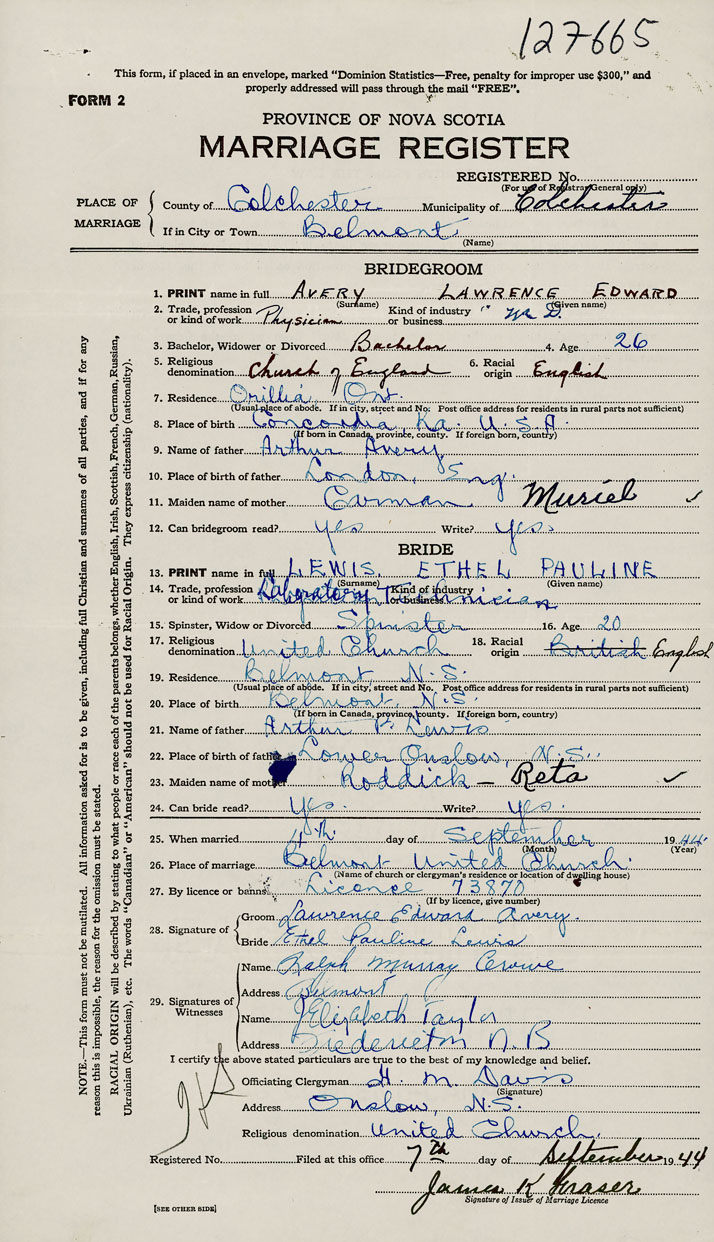 127665
This form, if placed in an envelope, marked "Dominion Statistics—Free, penalty for improper use $300," and
properly addressed will pass through the mail "FREE".
FORM 2
PROVINCE OF NOVA SCOTIA
MARRIAGE REGISTER
REGISTERED No.
(For use of Registrar General only)
PLACE OF MARRIAGE
County of Colchester Municipality of Colchester
If in City or Town Belmont
(Name)
BRIDEGROOM
1. PRINT name in full AVERY LAWRENCE EDWARD
(Surname) (Given name)
2. Trade, profession or kind of work Physician Kind of industry or business " M D.
3. Bachelor, Widower or Divorced Bachelor 4. Age 26
5. Religious denomination Church of England 6. Racial origin English
7. Residence Orillia, Ont.
(Usual place of abode. If in city, street and No. Post office address for residents in rural parts not sufficient)
8. Place of birth Concordia, Ka. U.S.A.
(If born in Canada, province, county. If foreign born, country)
9. Name of father Arthur Avery
10. Place of birth of father London, Eng.
11. Maiden name of mother Carman Muriel ✓
12. Can bridegroom read? yes Write? yes.
BRIDE
13. PRINT name in full LEWIS, ETHEL PAULINE
(Surname) (Given name)
14. Trade, profession or kind of work Laboratory Technician Kind of industry or business
15. Spinster, Widow or Divorced Spinster 16. Age 20
17. Religious denomination United Church 18. Racial origin British English
19. Residence Belmont, N.S.
(Usual place of abode. If in city, street and No. Post office address for residents in rural parts not sufficient)
20. Place of birth Belmont, N.S.
(If born in Canada, province, county. If foreign born, country)
21. Name of father Arthur P. Lewis
22. Place of birth of father Lower Onslow, N.S.
23. Maiden name of mother Roddick — Reta ✓
24. Can bride read? Yes. Write? yes.
25. When married 4th day of September 1944
(Month) (Year)
26. Place of marriage Belmont United Church.
(Name of church or clergyman's residence or location of dwelling house)
27. By licence or banns Licence 73870
(If by licence, give number)
28. Signature of
Groom Lawrence Edward Avery.
Bride Ethel Pauline Lewis
29. Signatures of Witnesses
Name Ralph Murray Crowe
Address Belmont
Name Elizabeth Taylor
Address Fredericton N.B
I certify the above stated particulars are true to the best of my knowledge and belief.
Officiating Clergyman H. M. Davis
(Signature)
Address Onslow, N.S.
Religious denomination United Church.
Registered No. Filed at this office 7th day of September 1944
James K Fraser
Signature of Issuer of Marriage Licence
[SEE OTHER SIDE]
NOTE.—This form must not be mutilated. All information asked for is to be given, including full Christian and surnames of all parties, and if for any
reason this is impossible, the reason for the omission must be stated.
RACIAL ORIGIN will be described by stating to what people or race each of the parents belongs, whether English, Irish, Scottish, French, German, Russian,
Ukrainian (Ruthenian), etc. The words "Canadian" or "American" should not be used for Racial Origin. They express citizenship (nationality).